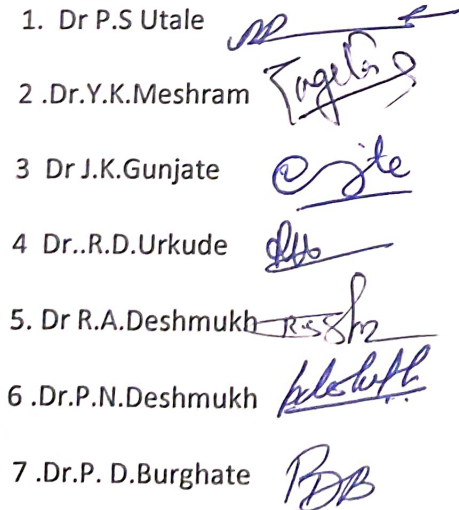 1. Dr P.S Utale
2 .Dr.Y.K.Meshram
3 Dr J.K.Gunjate
4 Dr..R.D.Urkude
5. Dr R.A.Deshmukh
6 .Dr.P.N.Deshmukh
7 .Dr.P. D.Burghate PDB